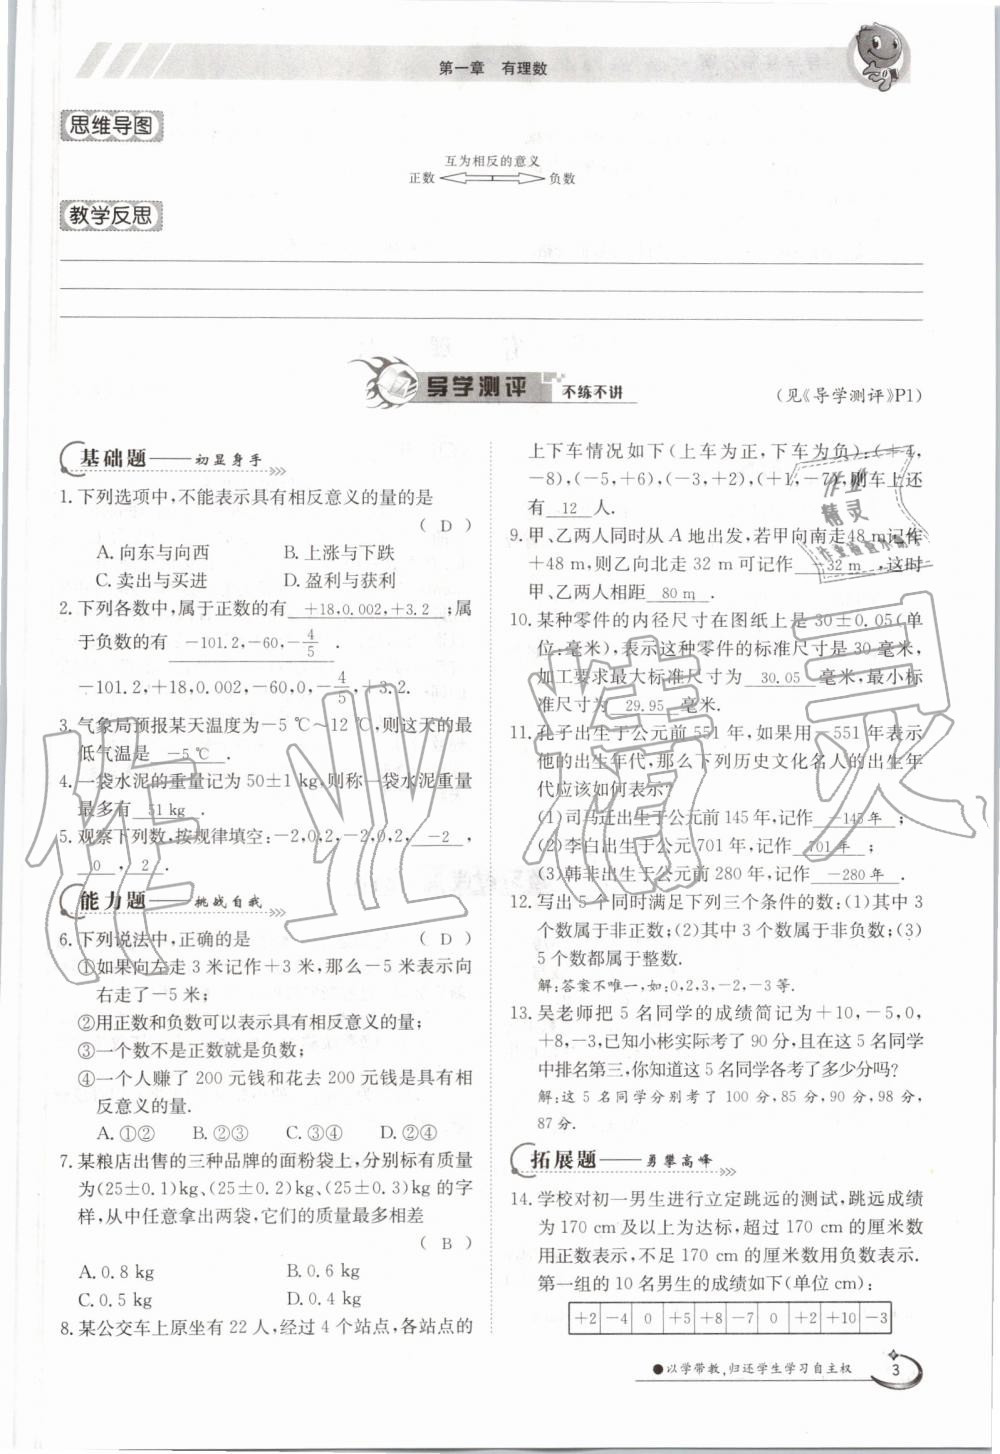 第一章　有理数
思维导图
互为相反的意义
正数　负数
教学反思
导学测评　不练不讲　(见《导学测评》P1)
基础题——初显身手
1. 下列选项中,不能表示具有相反意义的量的是
( D )
A. 向东与向西　B. 上涨与下跌
C. 卖出与买进　D. 盈利与获利
2. 下列各数中,属于正数的有 +18,0.002,+3.2 ;属
于负数的有 -101.2,-60,-4/5 .
-101.2,+18,0.002,-60,0,-4/5,+3.2.
3. 气象局预报某天温度为-5 ℃~12 ℃,则这天的最
低气温是 -5℃ .
4. 一袋水泥的重量记为50±1 kg,则称一袋水泥重量
最多有 51 kg .
5. 观察下列数,按规律填空:-2,0,2,-2,0,2, -2 ,
0 , 2 .
能力题——挑战自我
6. 下列说法中,正确的是　( D )
①如果向左走 3 米记作+3 米,那么-5 米表示向
右走了-5 米;
②用正数和负数可以表示具有相反意义的量;
③一个数不是正数就是负数;
④一个人赚了 200 元钱和花去 200 元钱是具有相
反意义的量.
A. ①②　B. ②③　C. ③④　D. ②④
7. 某粮店出售的三种品牌的面粉袋上,分别标有质量
为(25±0.1)kg、(25±0.2)kg、(25±0.3)kg 的字
样,从中任意拿出两袋,它们的质量最多相差
( B )
A. 0.8 kg　B. 0.6 kg
C. 0.5 kg　D. 0.4 kg
8. 某公交车上原坐有 22 人,经过 4 个站点,各站点的
上下车情况如下(上车为正,下车为负):(+4,
-8),(-5,+6),(-3,+2),(+1,-7),则车上还
有 12 人.
9. 甲、乙两人同时从 A 地出发,若甲向南走48 m记作
+48 m,则乙向北走 32 m 可记作 -32 m ,这时
甲、乙两人相距 80 m .
10. 某种零件的内径尺寸在图纸上是 30±0.05(单
位:毫米),表示这种零件的标准尺寸是 30 毫米,
加工要求最大标准尺寸为 30.05 毫米,最小标
准尺寸为 29.95 毫米.
11. 孔子出生于公元前 551 年,如果用-551年表示
他的出生年代,那么下列历史文化名人的出生年
代应该如何表示?
(1)司马迁出生于公元前 145 年,记作 -145 年 ;
(2)李白出生于公元 701 年,记作 701 年 ;
(3)韩非出生于公元前 280 年,记作 -280 年 .
12. 写出 5 个同时满足下列三个条件的数:(1)其中 3
个数属于非正数;(2)其中 3 个数属于非负数;(3)
5 个数都属于整数.
解:答案不唯一,如:0,2,3,-2,-3 等.
13. 吴老师把 5 名同学的成绩简记为+10,-5,0,
+8,-3,已知小彬实际考了 90 分,且在这 5 名同学
中排名第三,你知道这 5 名同学各考了多少分吗?
解:这 5 名同学分别考了 100 分,85 分,90 分,98 分,
87 分.
拓展题——勇攀高峰
14. 学校对初一男生进行立定跳远的测试,跳远成绩
为 170 cm 及以上为达标,超过 170 cm 的厘米数
用正数表示,不足 170 cm 的厘米数用负数表示.
第一组的 10 名男生的成绩如下(单位 cm):
+2 -4 0 +5 +8 -7 0 +2 +10 -3
●以学带教,归还学生学习自主权　3
作业精灵
作业
精灵